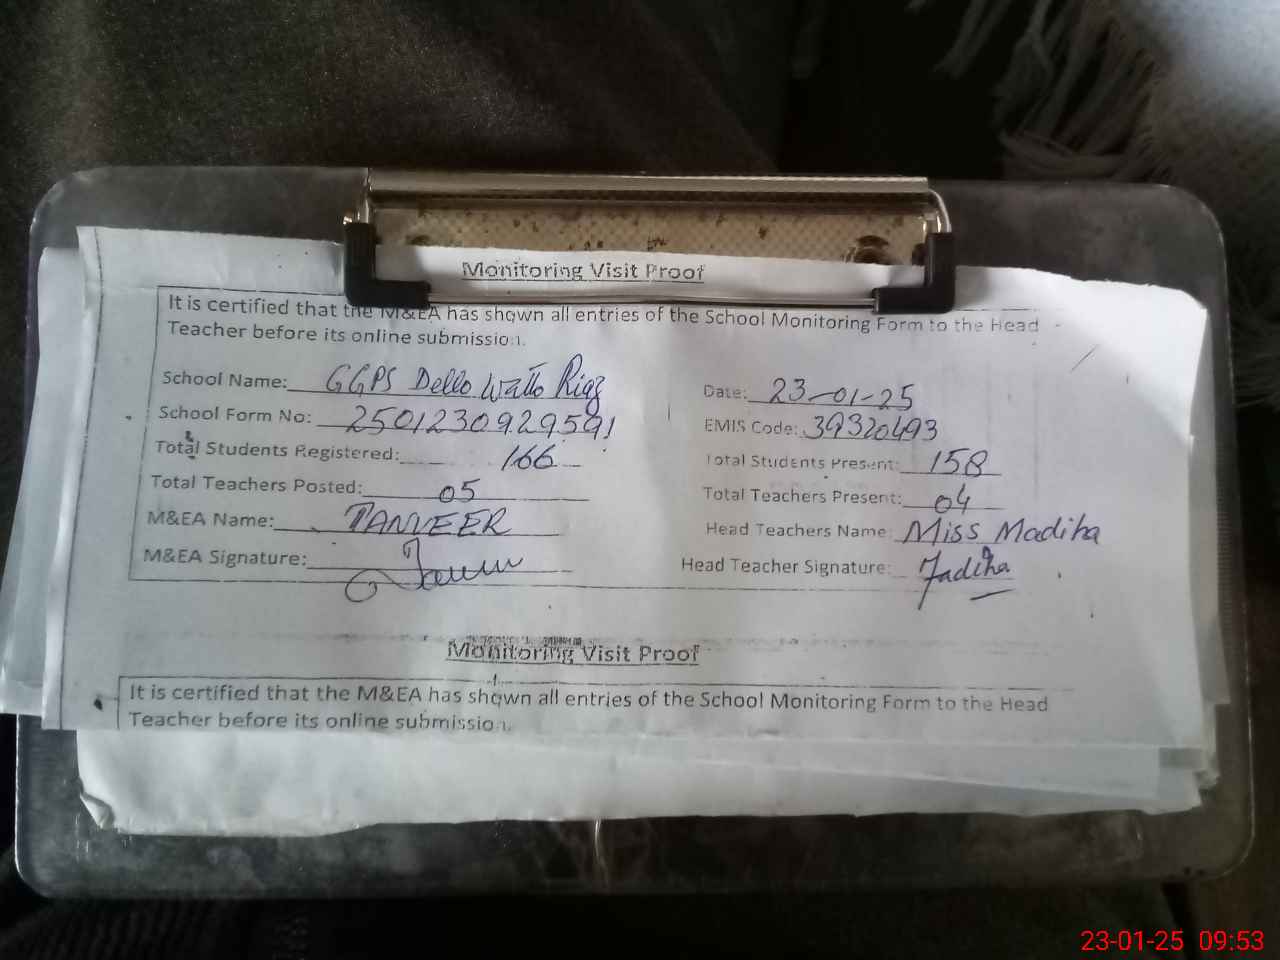 Monitoring Visit Proof
It is certified that the M&EA has shown all entries of the School Monitoring Form to the Head
Teacher before its online submission.
School Name: GGPS Dello Watto Riaz Date: 23-01-25
School Form No: 2501230929591 EMIS Code: 39320493
Total Students Registered: 166 Total Students Present: 158
Total Teachers Posted: 05 Total Teachers Present: 04
M&EA Name: TANVEER Head Teachers Name: Miss Madiha
M&EA Signature: Head Teacher Signature: Madiha
Monitoring Visit Proof
It is certified that the M&EA has shown all entries of the School Monitoring Form to the Head
Teacher before its online submission.
23-01-25 09:53